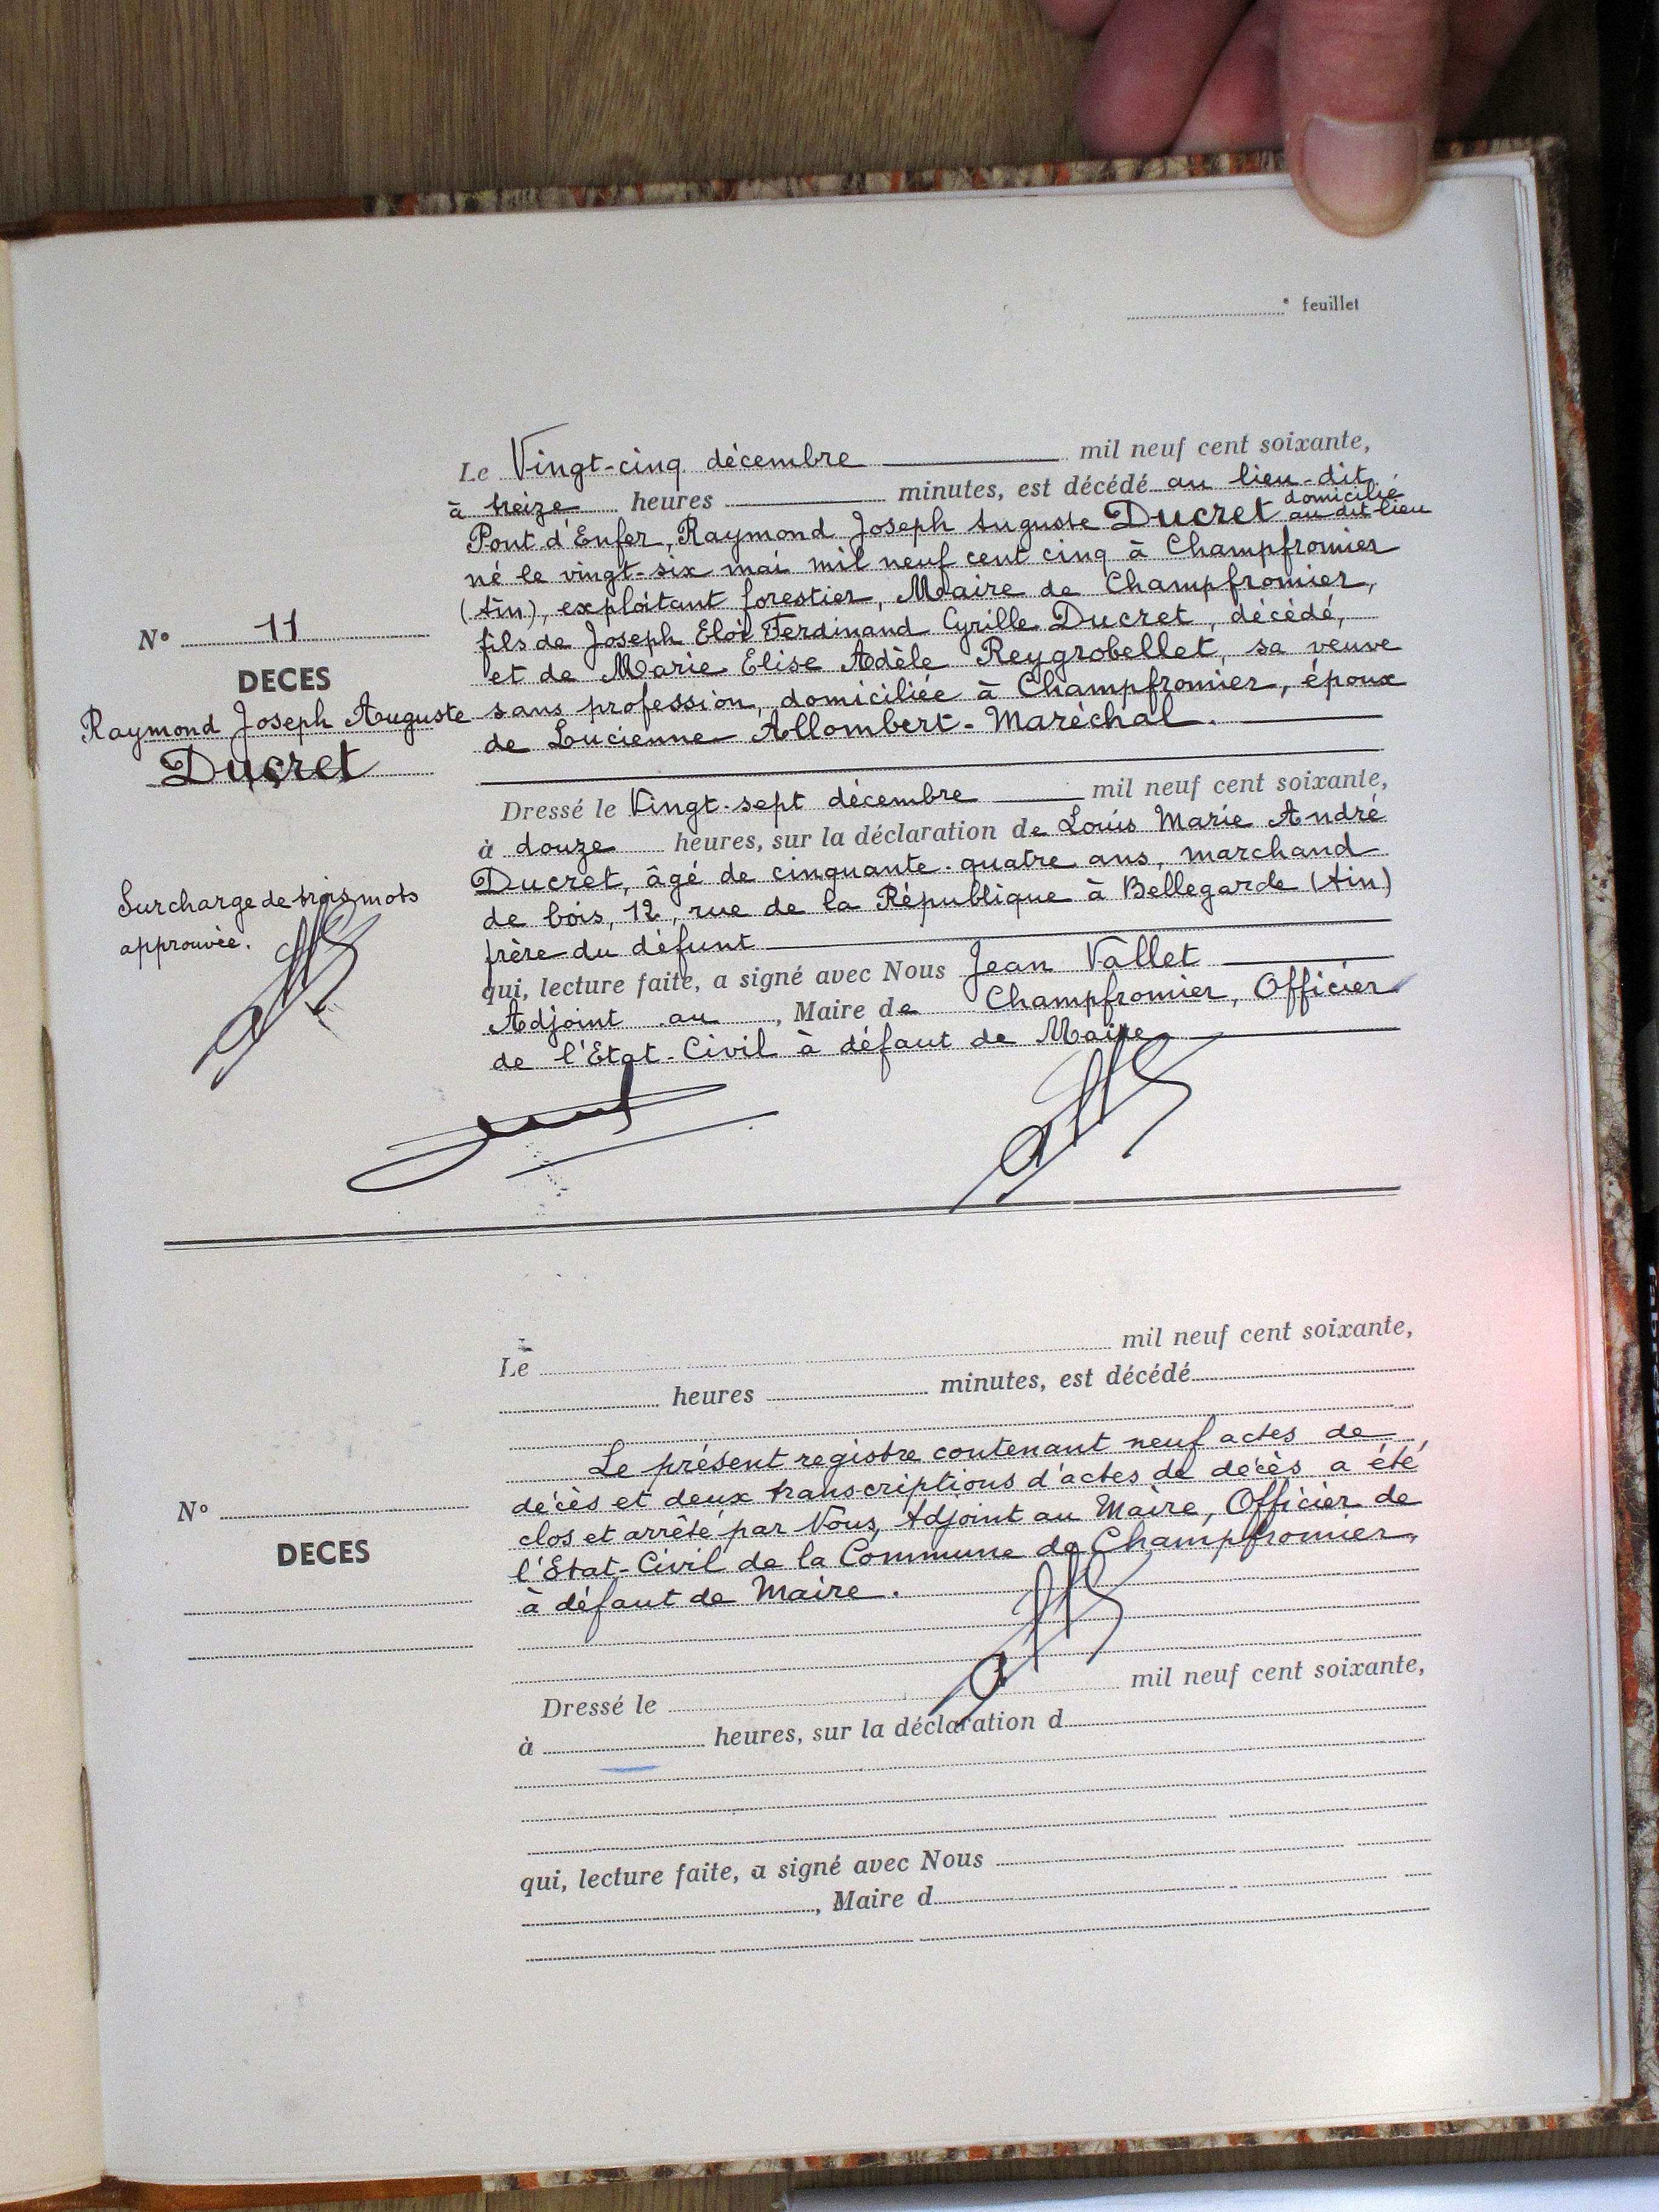 feuillet
Le Vingt-cinq décembre mil neuf cent soixante,
à treize heures minutes, est décédé au lieu-dit
domicilié
Pont d'Enfer, Raymond Joseph Auguste Ducret au dit lieu
né le vingt-six mai mil neuf cent cinq à Champfromier
(Ain), exploitant forestier, Maire de Champfromier,
fils de Joseph Eloi Ferdinand Cyrille Ducret, décédé,
et de Marie Elise Adèle Reygrobellet, sa veuve
sans profession, domiciliée à Champfromier, époux
de Lucienne Allombert-Maréchal.
N° 11
DECES
Raymond Joseph Auguste
Ducret
Dressé le Vingt-sept décembre mil neuf cent soixante,
à douze heures, sur la déclaration de Louis Marie André
Ducret, âgé de cinquante-quatre ans, marchand
de bois, 12, rue de la République à Bellegarde (Ain)
frère du défunt
qui, lecture faite, a signé avec Nous Jean Vallet
Adjoint au , Maire de Champfromier, Officier
de l'Etat-Civil à défaut de Maire
Surcharge de trois mots
approuvée.
Le mil neuf cent soixante,
heures minutes, est décédé
Le présent registre contenant neuf actes de
décès et deux transcriptions d'actes de décès a été
clos et arrêté par Nous, Adjoint au Maire, Officier de
l'Etat-Civil de la Commune de Champfromier,
à défaut de Maire.
N°
DECES
Dressé le mil neuf cent soixante,
à heures, sur la déclaration d
qui, lecture faite, a signé avec Nous
, Maire d